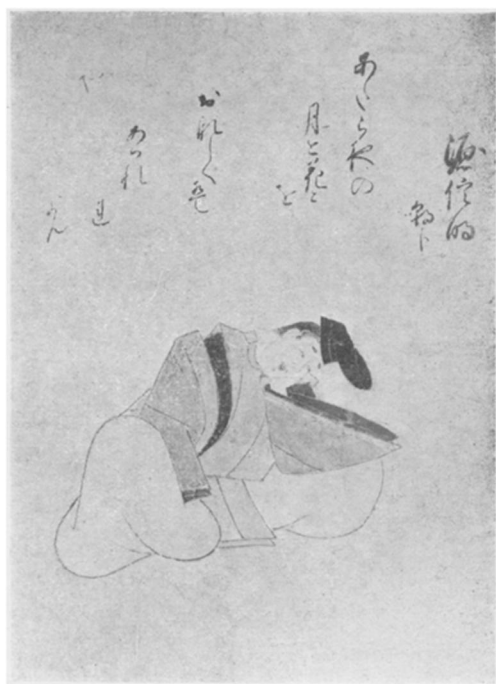 源信明
朝臣
あたら夜の
月と花と
を
おなしくは
あはれ
れ
らん